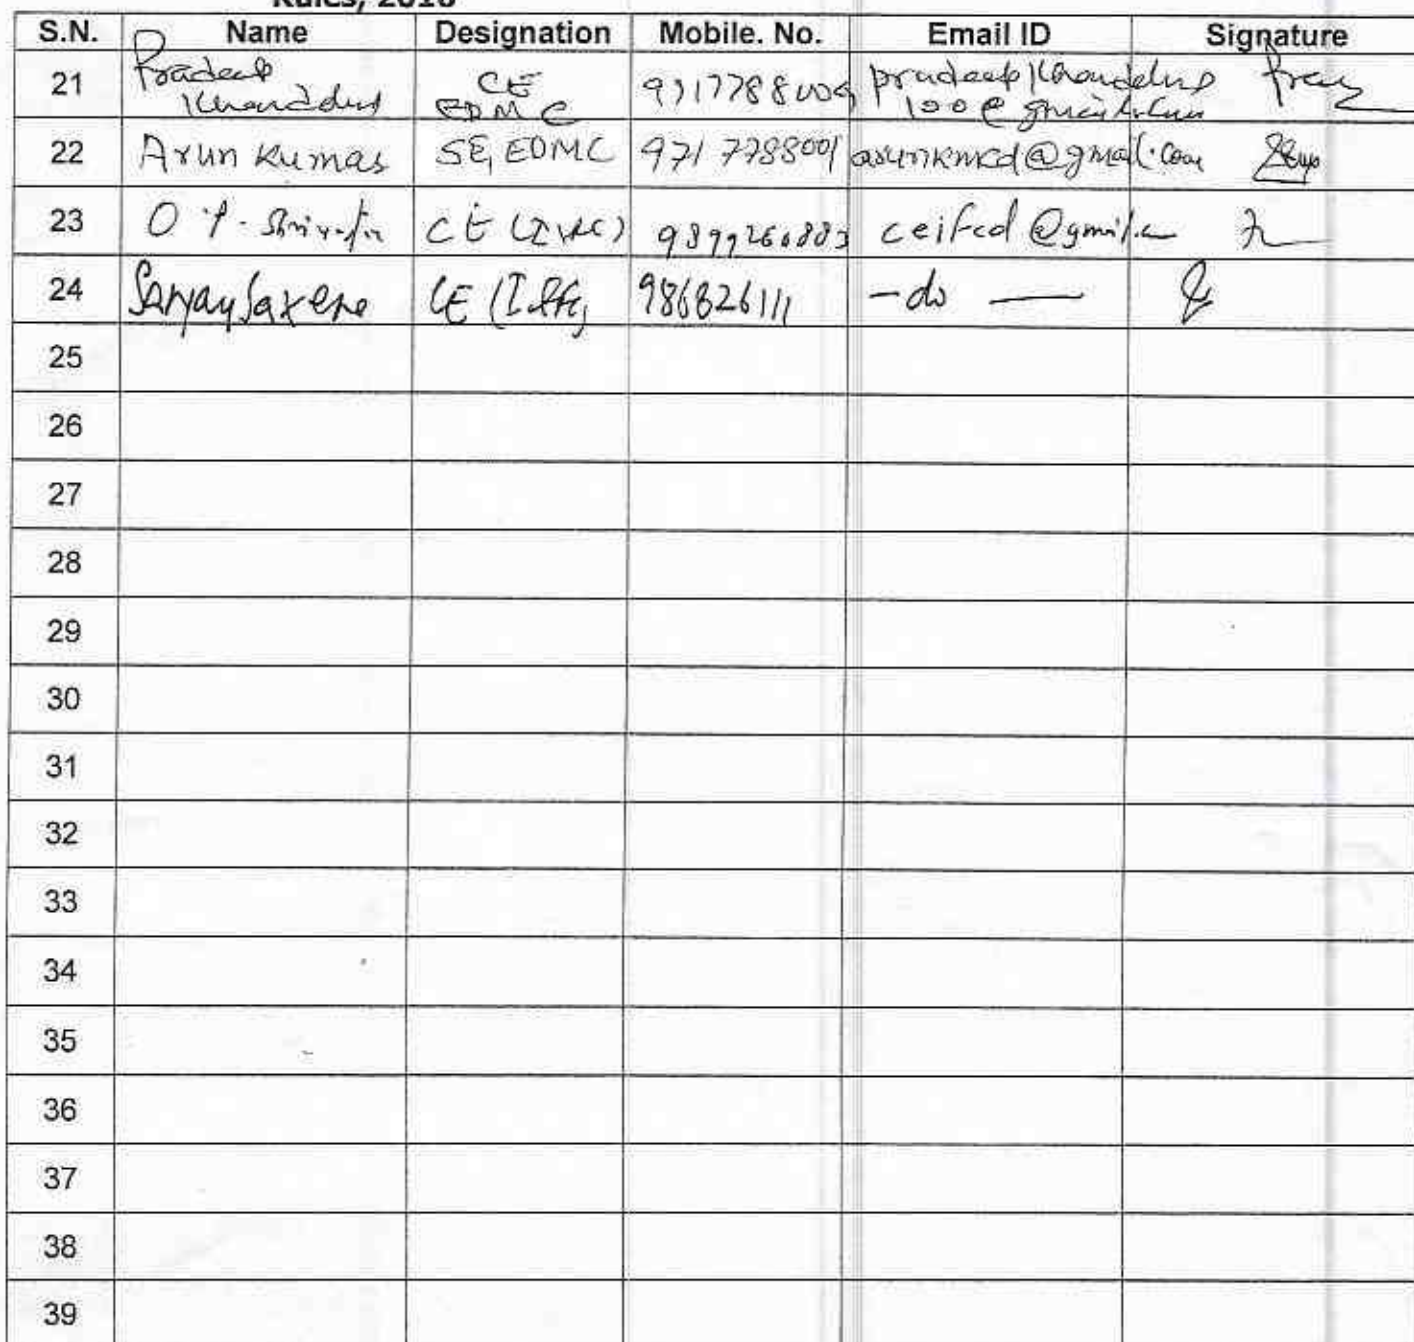 Rules, 2016
S.N. Name Designation Mobile. No. Email ID Signature
21 Pradeep Khandelwal CE EDMC pradeep khandelwal
100@gmail.com
22 Arun Kumar SE, EDMC 9717788001 arunkmcd@gmail.com
23 CE (I&FC) 9899260883 ceifcd@gmail.com
24 Sanjay Saxena CE (I&FC) 986826111 -do-
25
26
27
28
29
30
31
32
33
34
35
36
37
38
39